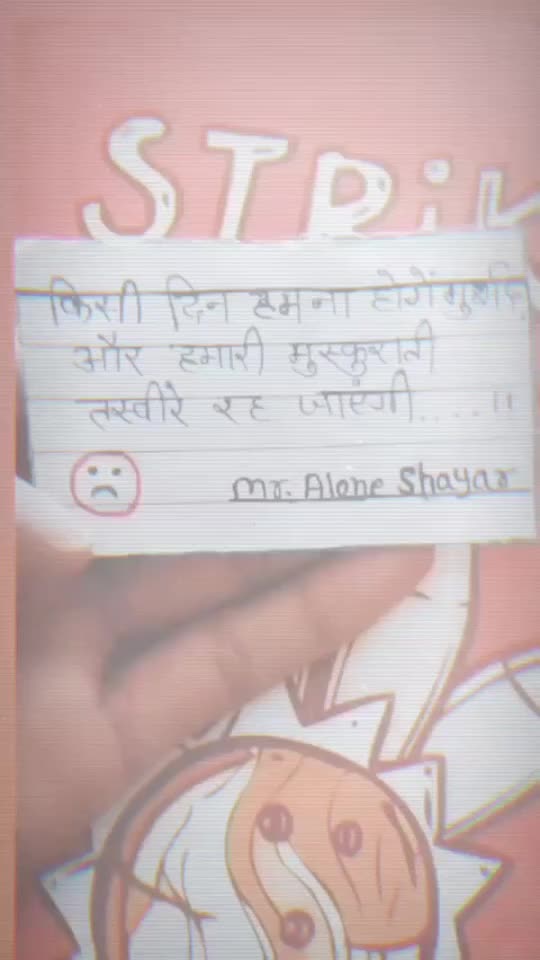 STRiK
किसी दिन हम ना होगें
और हमारी मुस्कुराती
तस्वीरे रह जाएंगी.....।।
Mr. Alone Shayar